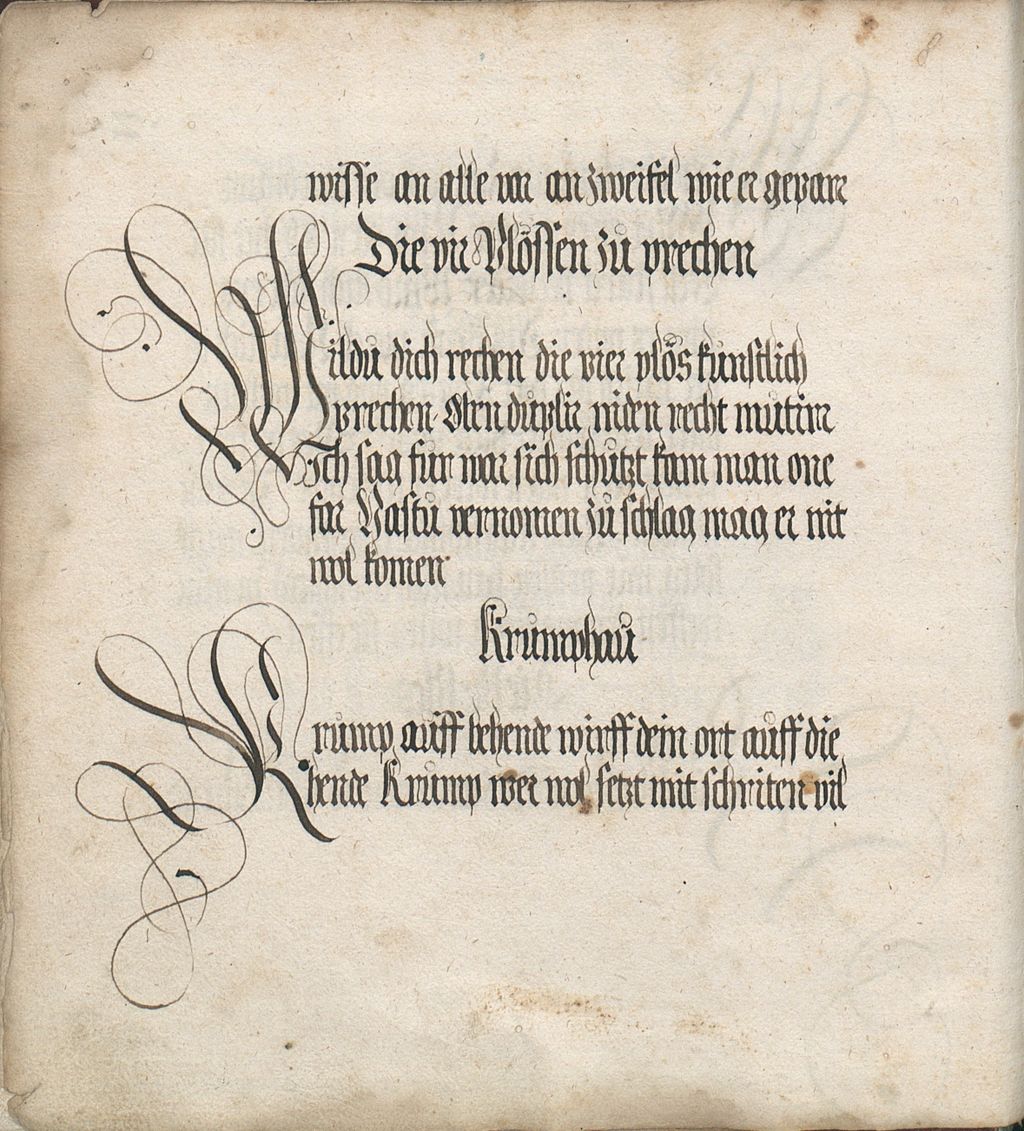 8
wisse an alle var an zweifel wie er geparr
Die vir Plössen zu prechen
Wildu dich rechen die vier plös kunstlich
prechen Oben duplir niden recht mutirr
Ich sag fur war sich schutzt kam man one
far Hastu vernomen zu schlag mag er nit
wol komen
Krumphau
Krump auff behende wirff dein ort auff die
hende Krump wer wol setzt mit schriten vil